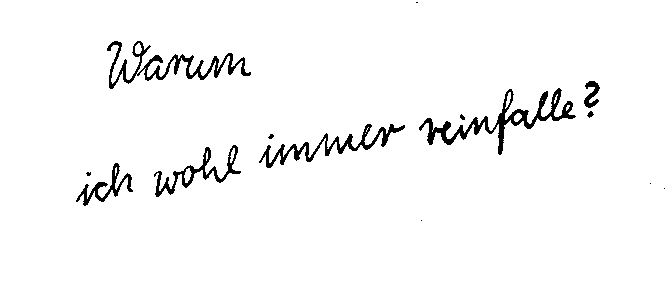 Warum
ich wohl immer reinfalle?